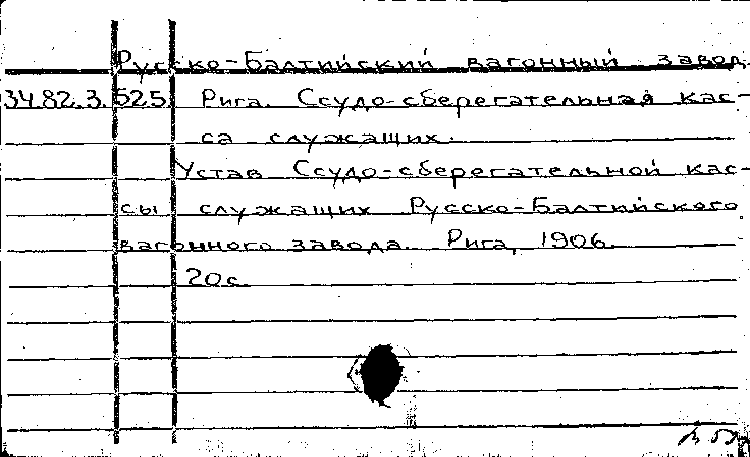 Русско-Балтийский вагонный завод.
34.82.3.525 Рига. Ссудо-сберегательная кас-
са служащих.
Устав Ссудо-сберегательной кас-
сы служащих Русско-Балтийского
вагонного завода. Рига, 1906.
20с.